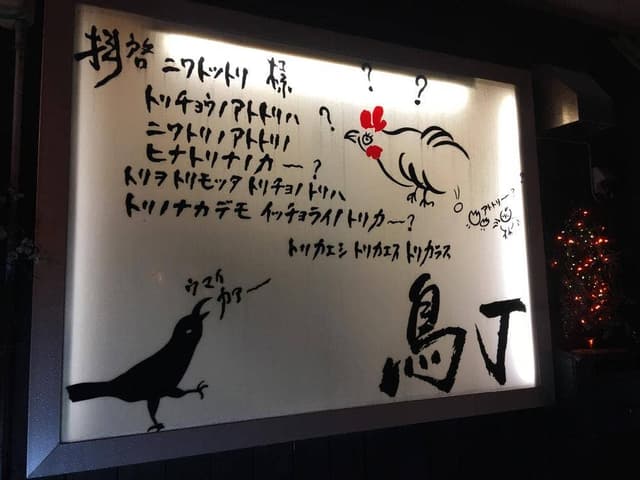 拝啓 ニワトットリ 様 ? ?
トリチョウノアトトリハ ?
ニワトリノアトトリノ
ヒナトリナノカ〜?
トリヲトリモッタ トリチョノトリハ
トリノナカデモ イッチョライノトリカ〜?
アトトリ〜?
トリカエシ トリカエス トリガラス
ウマイカァー
鳥丁